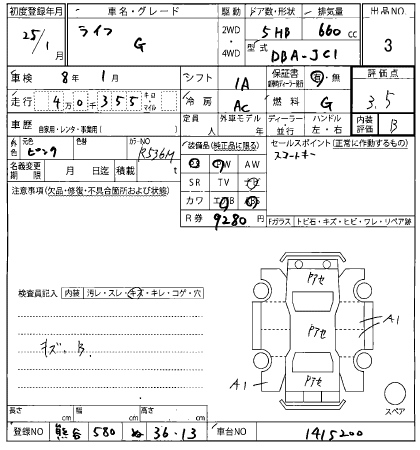 初度登録年月 車名・グレード 駆動 ドア数・形状 排気量 出品NO
25/1月 ライフ G 2WD・4WD 5HB 660cc 3
型式 DBA-JC1
車検 8年1月 シフト IA 保証書 有・無 評価点
走行 4万0千355キロ・マイル 冷房 AC 燃料 G 3.5
車歴 自家用・レンタ・事業用( ) 定員 人 外車モデル 年 ディーラー・並行 ハンドル 左・右 内装評価 B
色 元色 ピンク 色替 カラーNO R536M 装備品(純正品に限る) セールスポイント(正常に作動するもの)
名義変更期限 月 日迄 積載 t PW AW スマートキー
注意事項(欠品・修復・不具合箇所および状態) SR TV
カワ
R券 9280円
Fガラス トビ石・キズ・ヒビ・ワレ・リペア跡
検査員記入 内装 汚レ・スレ・キズ・キレ・コゲ・穴
キズ、B
A1
A1
スペア
長さ cm 幅 cm 高さ cm
登録NO 熊谷 580 ぬ 36-13 車台NO 1415200